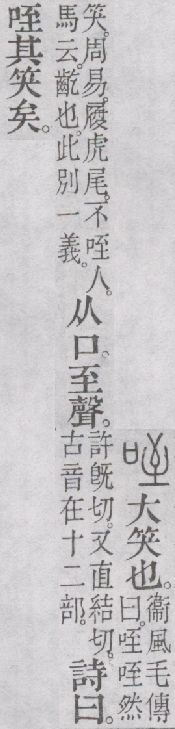 咥大笑也。衞風毛傳
曰。咥咥然
笑。周易。履虎尾。不咥人。
馬云。齕也。此別一義。
从口。至聲。
許旣切。又直結切。
古音在十二部。
詩曰。
咥其笑矣。